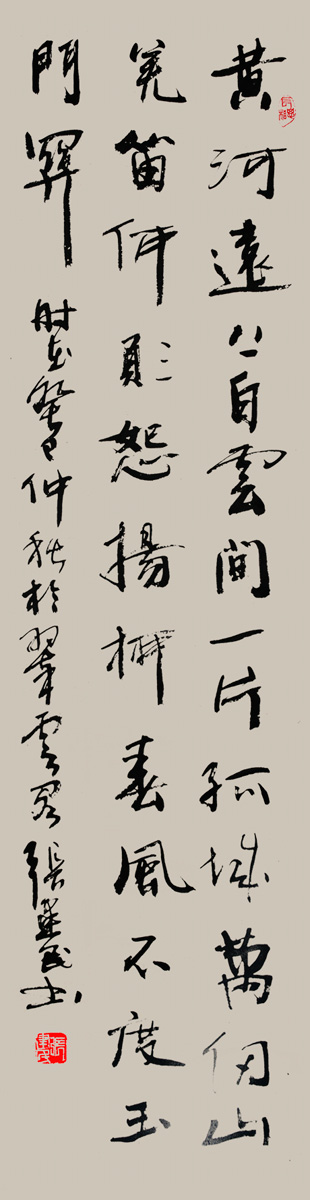 黃河遠上白雲間一片孤城萬仞山
羌笛何須怨揚柳春風不度玉
門關 時在癸巳仲秋於翠雲閣張建民書